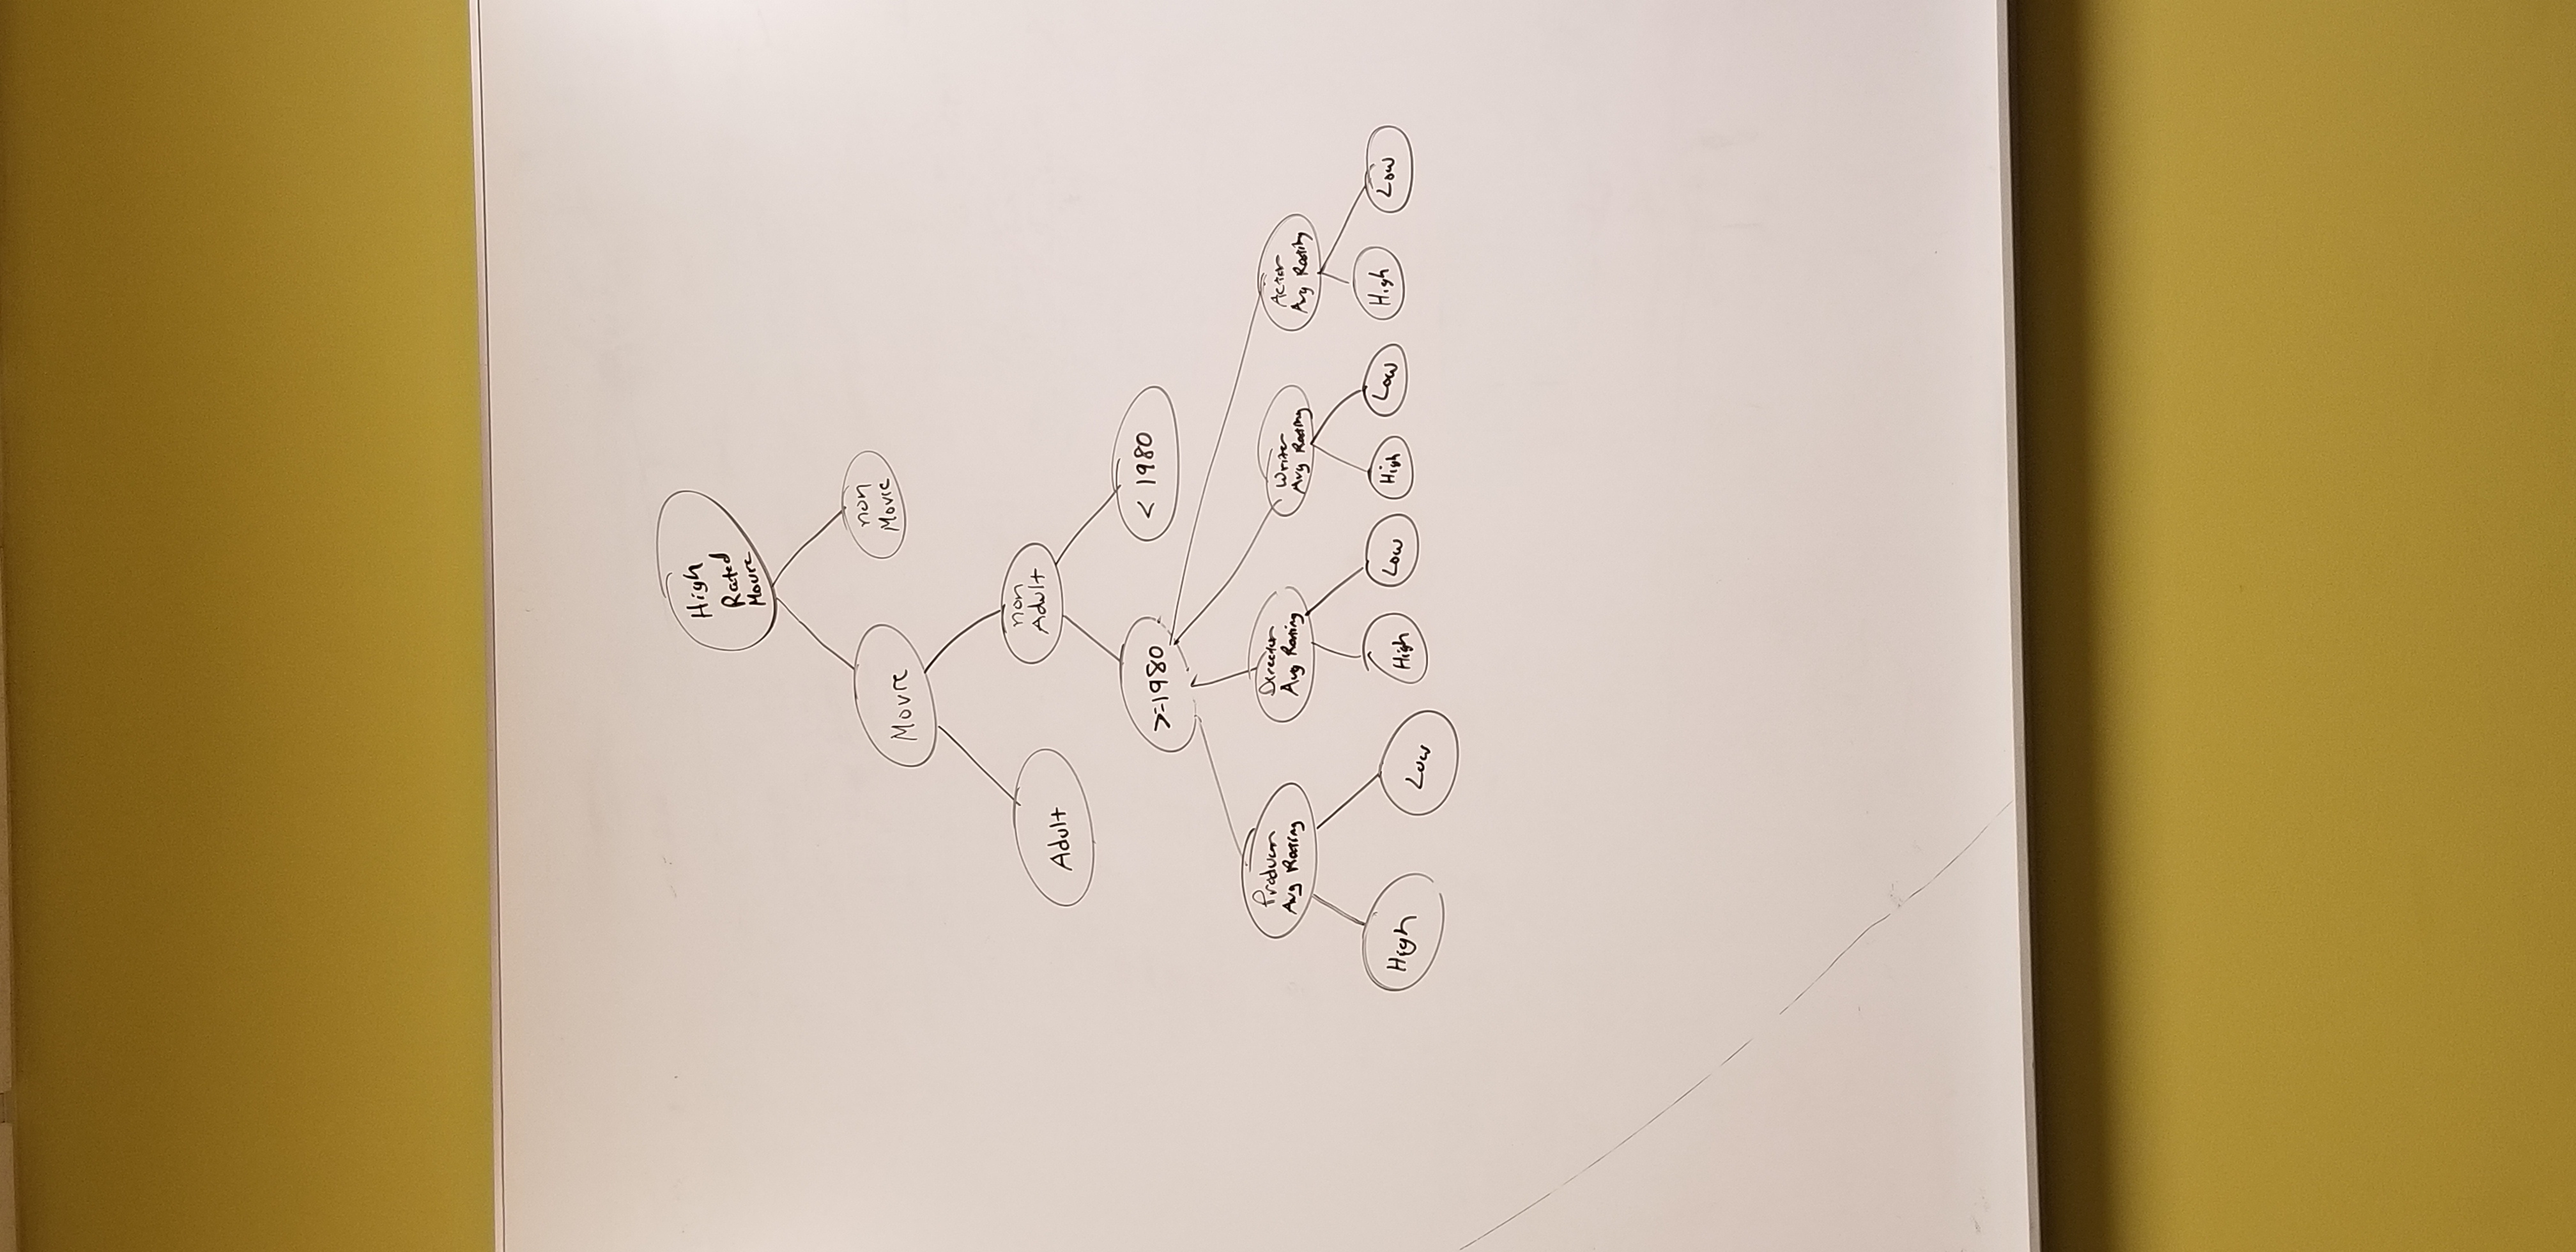 High
Rated
Movie
Movie
non
Movie
Adult
non
Adult
>=1980
< 1980
Producer
Avg Rating
Director
Avg Rating
Writer
Avg Rating
Actor
Avg Rating
High
Low
High
Low
High
Low
High
Low